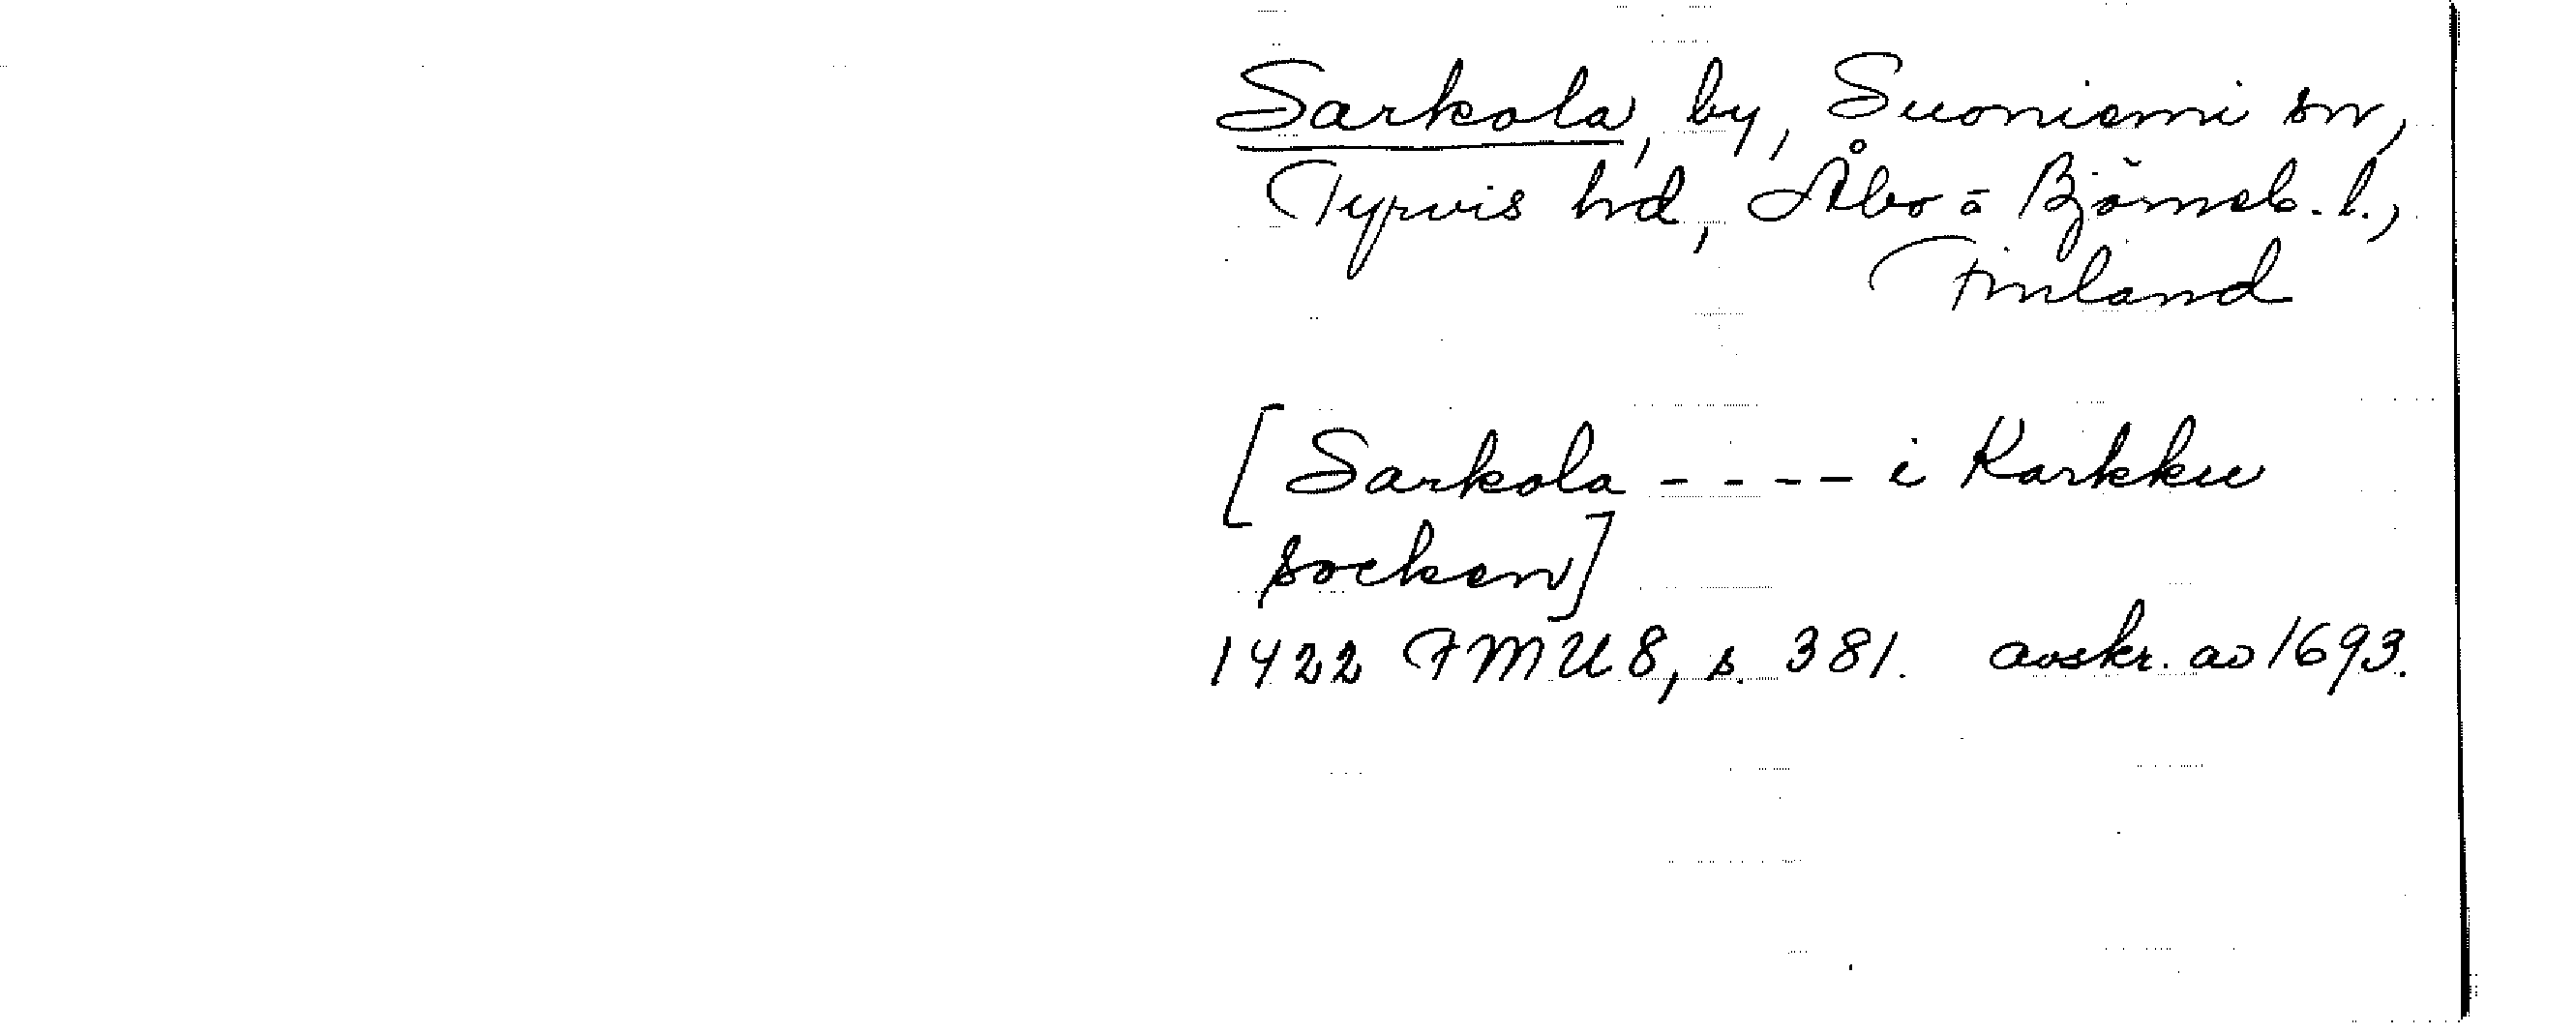 Sarkola, by, Suoniemi sn,
Tyrvis hd, Åbo o Björneb. l.,
Finland
[Sarkola - - - - i Karkku
socken]
1422 FMU 8, s. 381. avskr. av 1693.